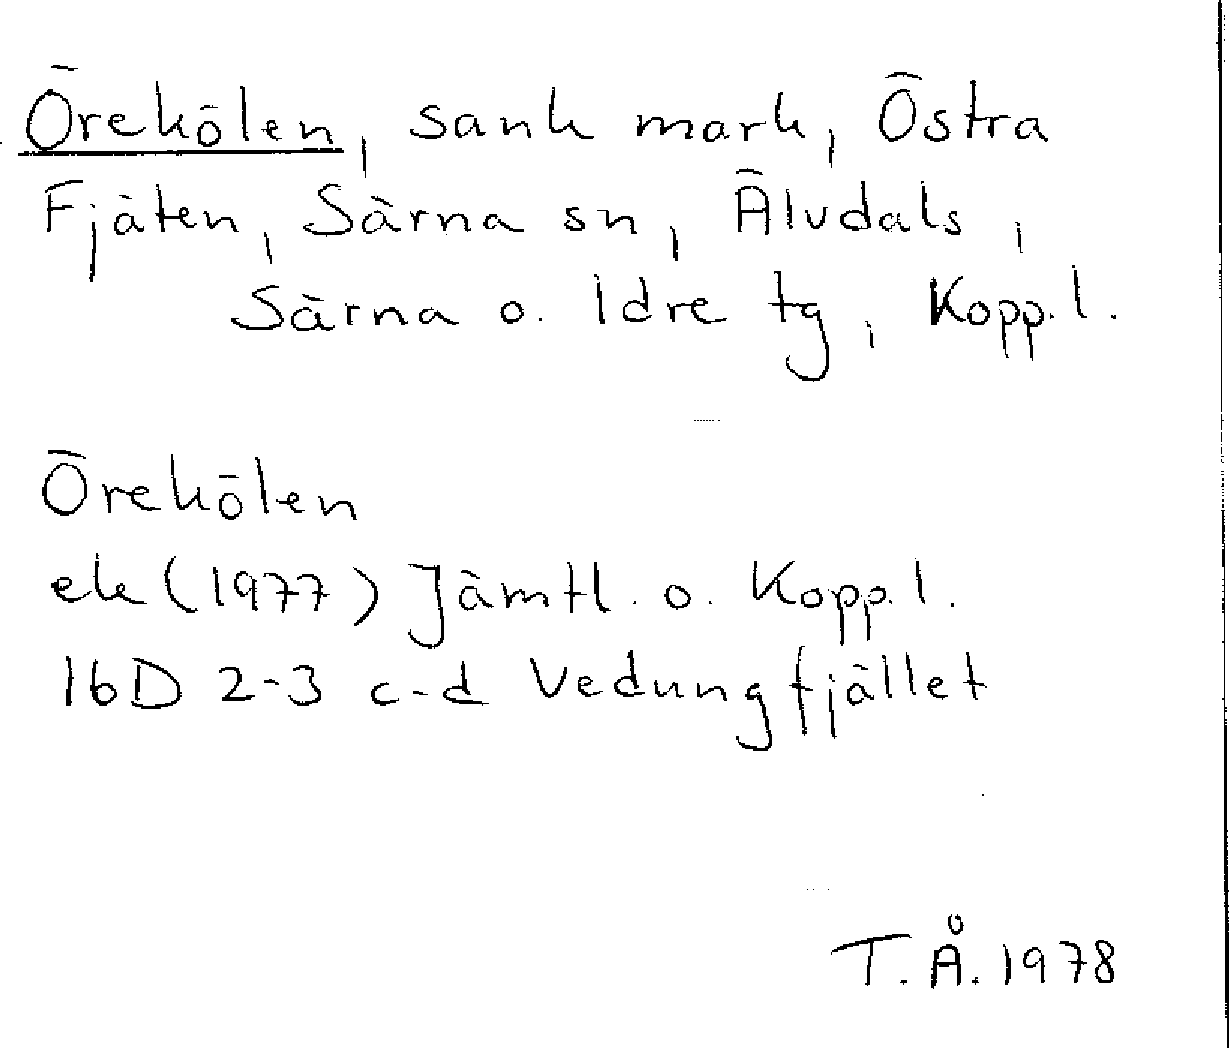 Örekölen, sank mark, Östra
Fjäten, Särna sn, Älvdals,
Särna o. Idre tg, Kopp.l.
Örekölen
ek (1977) Jämtl. o. Kopp.l.
16D 2-3 c-d Vedungfjället
T.Å. 1978